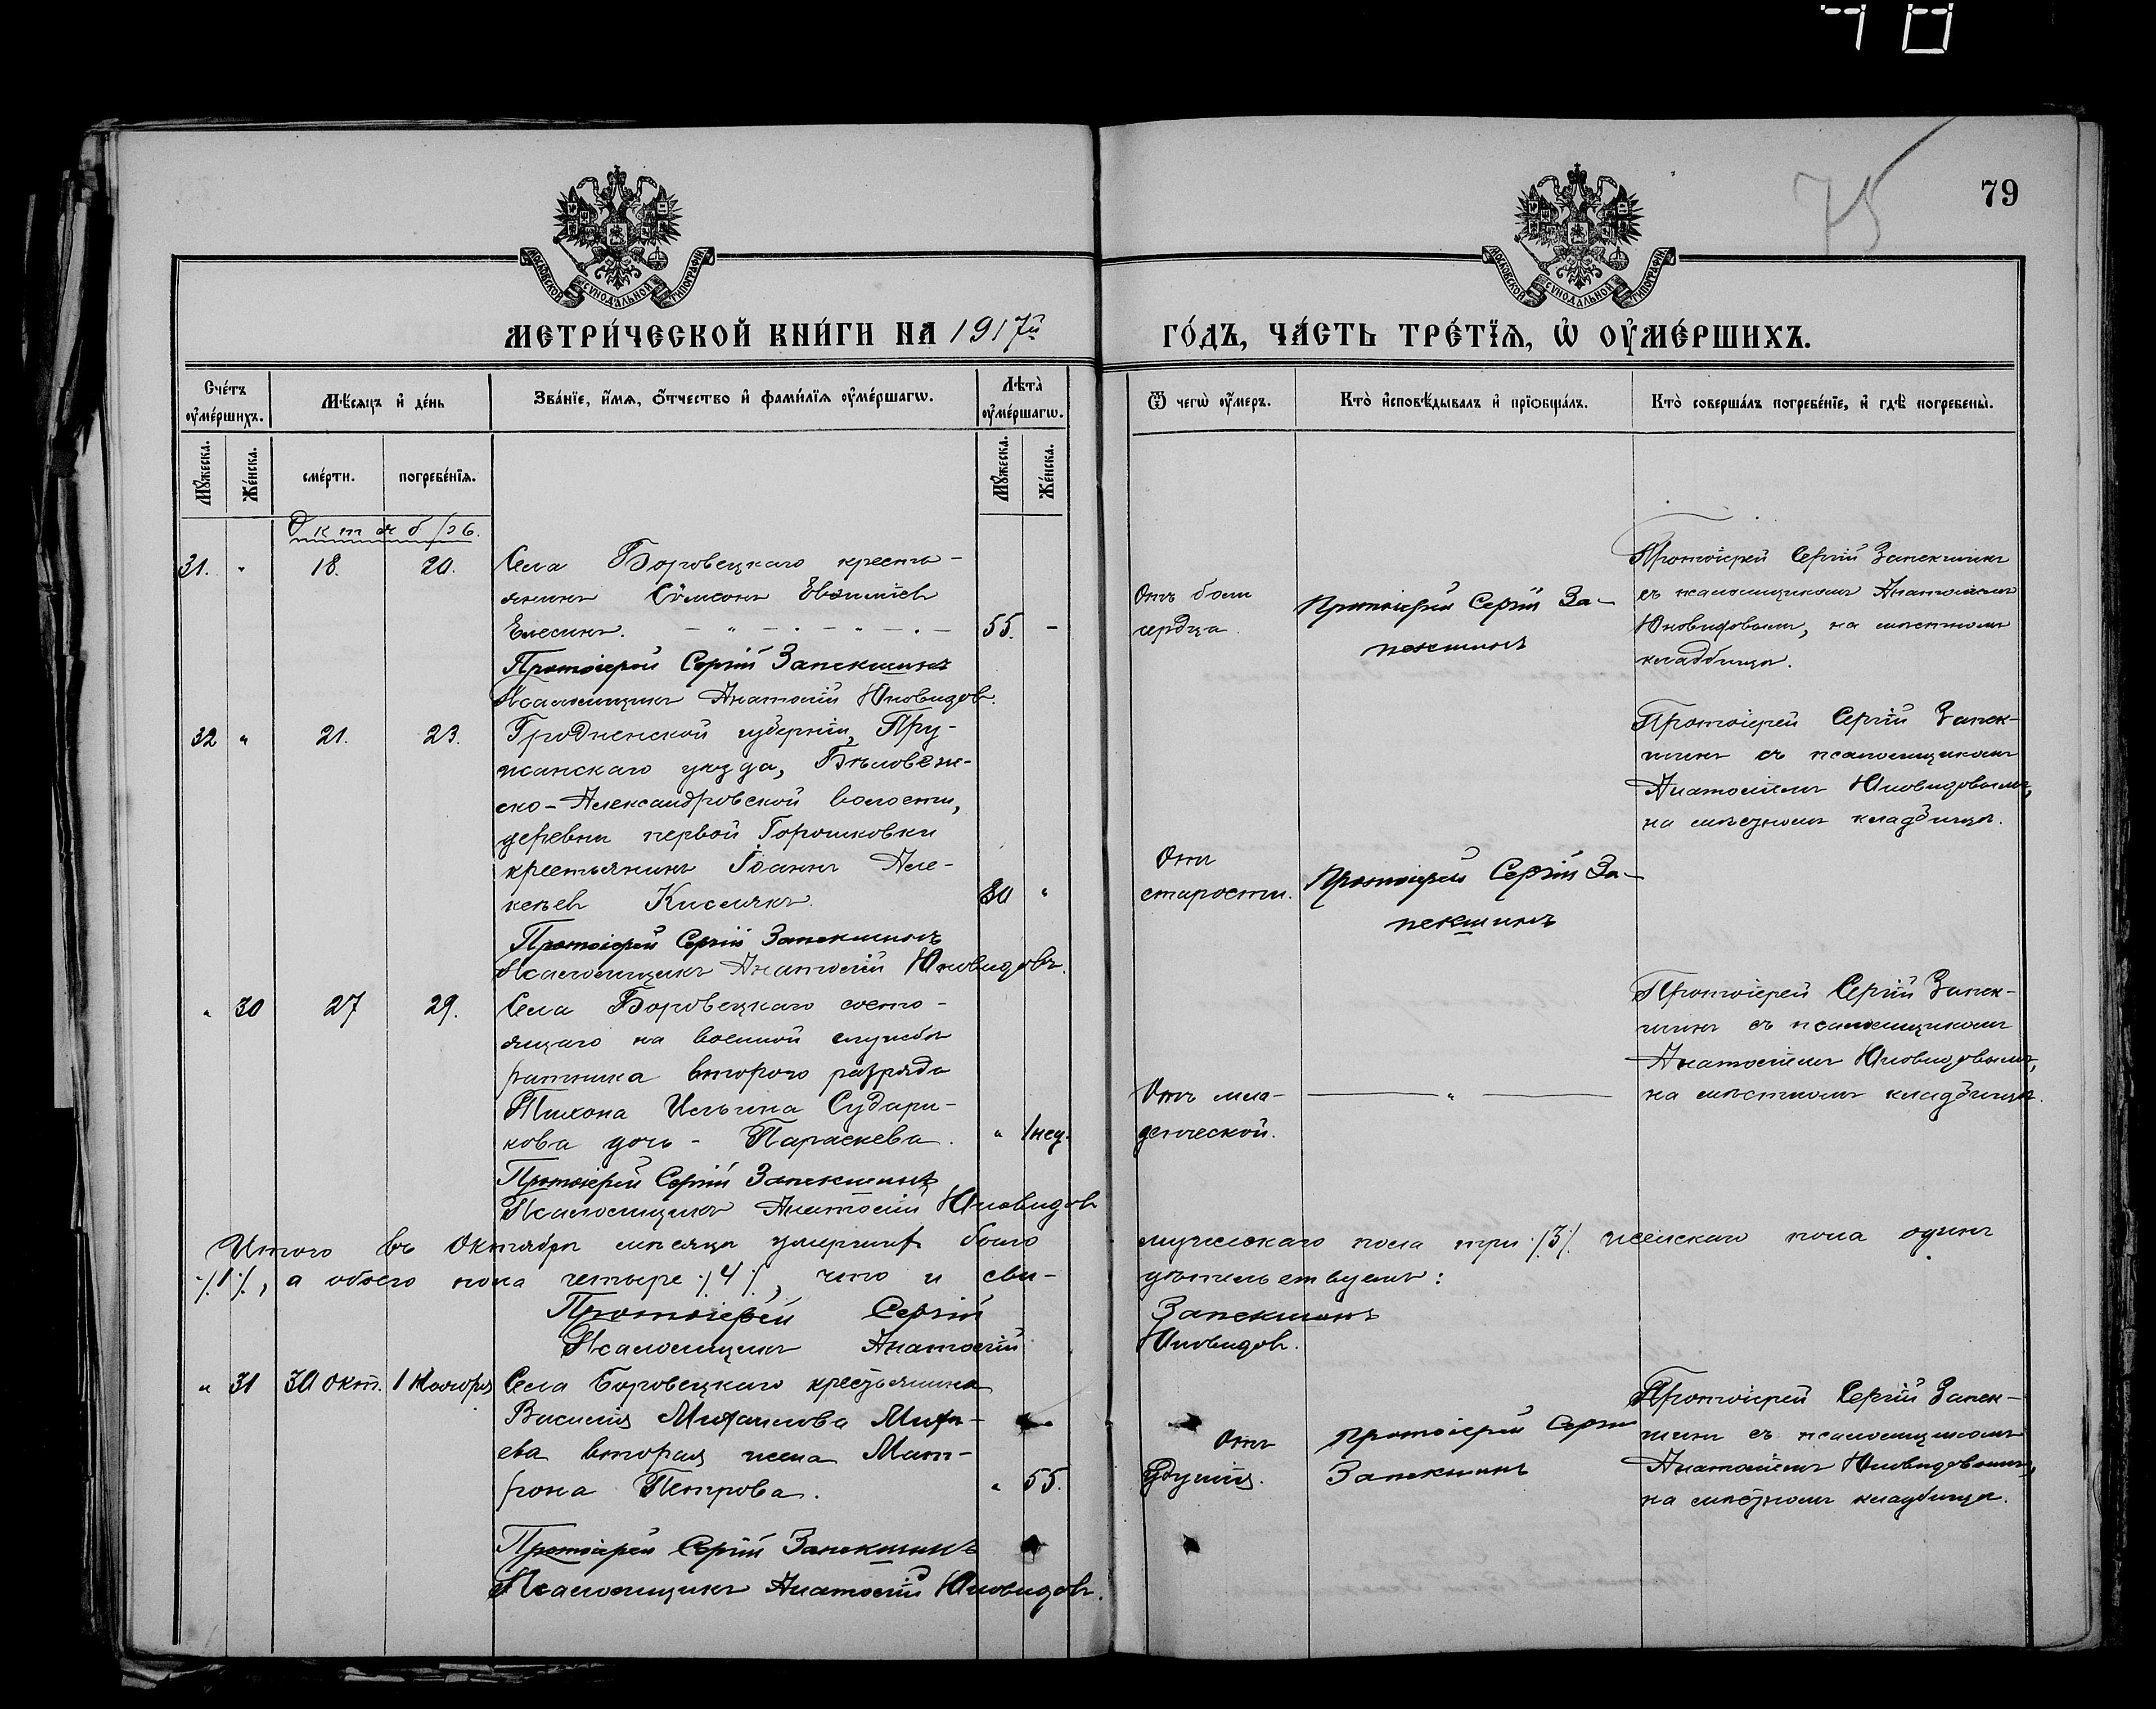 70
75
79
МОСКОВСКОЙ СУНОДАЛЬНОЙ ТИПОГРАФІИ
МОСКОВСКОЙ СУНОДАЛЬНОЙ ТИПОГРАФІИ
МЕТРИ́ЧЕСКОЙ КНИ́ГИ НА 1917й ГО́ДЪ, ЧА́СТЬ ТРЕ́ТЇѦ, Ѡ҆ ОУ҆МЕ́РШИХЪ.
Счє́тъ оу҆мє́ршихъ.
Мѣ́сѧцъ и҆ дє́нь
Зва́нїе, и҆́мѧ, ѻ҆́тчество и҆ фами́лїѧ оу҆мє́ршагѡ.
Лѣта̀ оу҆мє́ршагѡ.
Ѿ чегѡ̀ оу҆́меръ.
Кто̀ и҆сповѣ́дывалъ и҆ прїѡбща́лъ.
Кто̀ соверша́лъ погребе́нїе, и҆ гдѣ̀ погребены̀.
Мꙋ́жеска.
Жє́нска.
смє́рти.
погребє́нїѧ.
Мꙋ́жеска.
Жє́нска.
Октябрь.
31. " 18. 20.
Села Боровецкаго кресть-
янинъ Сѵмеонъ Евѳиміев
Елесинъ. 55. -
Протоіерей Сергій Запекшинъ
Псаломщикъ Анатолій Юновидов.
Отъ боли
сердца.
Протоіерей Сергій За-
пекшинъ
Протоіерей Сергій Запекшинъ
съ псаломщикомъ Анатоліемъ
Юновидовымъ, на мѣстномъ
кладбищѣ.
32 " 21. 23.
Гродненской губерніи, Пру-
жанскаго уѣзда, Бѣловеж-
ско-Александровской волости,
деревни первой Горошковки
крестьянинъ Іоаннъ Але-
ксѣев Кислякъ. 80 "
Протоіерей Сергій Запекшинъ
Псаломщикъ Анатолій Юновидовъ.
Отъ
старости.
Протоіерей Сергій За-
пекшинъ
Протоіерей Сергій Запек-
шинъ съ псаломщикомъ
Анатоліемъ Юновидовымъ,
на мѣстномъ кладбищѣ.
" 30 27 29.
Села Боровецкаго состо-
ящаго на военной службѣ
ратника второго разряда
Тихона Ильина Судари-
кова дочь - Параскева. " 1 нед.
Протоіерей Сергій Запекшинъ
Псаломщикъ Анатолій Юновидов
Отъ мла-
денческой.
"
Протоіерей Сергій Запек-
шинъ съ псаломщикомъ
Анатоліемъ Юновидовымъ,
на мѣстномъ кладбищѣ.
Итого въ Октябрѣ мѣсяцѣ умерших было мужескаго пола три ⁒3⁒ женскаго пола одинъ
⁒1⁒, а обоего пола четыре ⁒4⁒, что и сви- дѣтельствуемъ:
Протоіерей Сергій Запекшинъ
Псаломщикъ Анатолій Юновидов.
" 31 30 окт. 1 Ноября
Села Боровецкаго крестьянина
Василія Михаилова Миха-
ева вторая жена Мат-
рона Петрова. " 55.
Протоіерей Сергій Запекшинъ
Псаломщикъ Анатолій Юновидовъ.
Отъ
удушія.
Протоіерей Сергій
Запекшинъ
Протоіерей Сергій Запек-
шинъ съ псаломщикомъ
Анатоліемъ Юновидовымъ,
на мѣстномъ кладбищѣ.